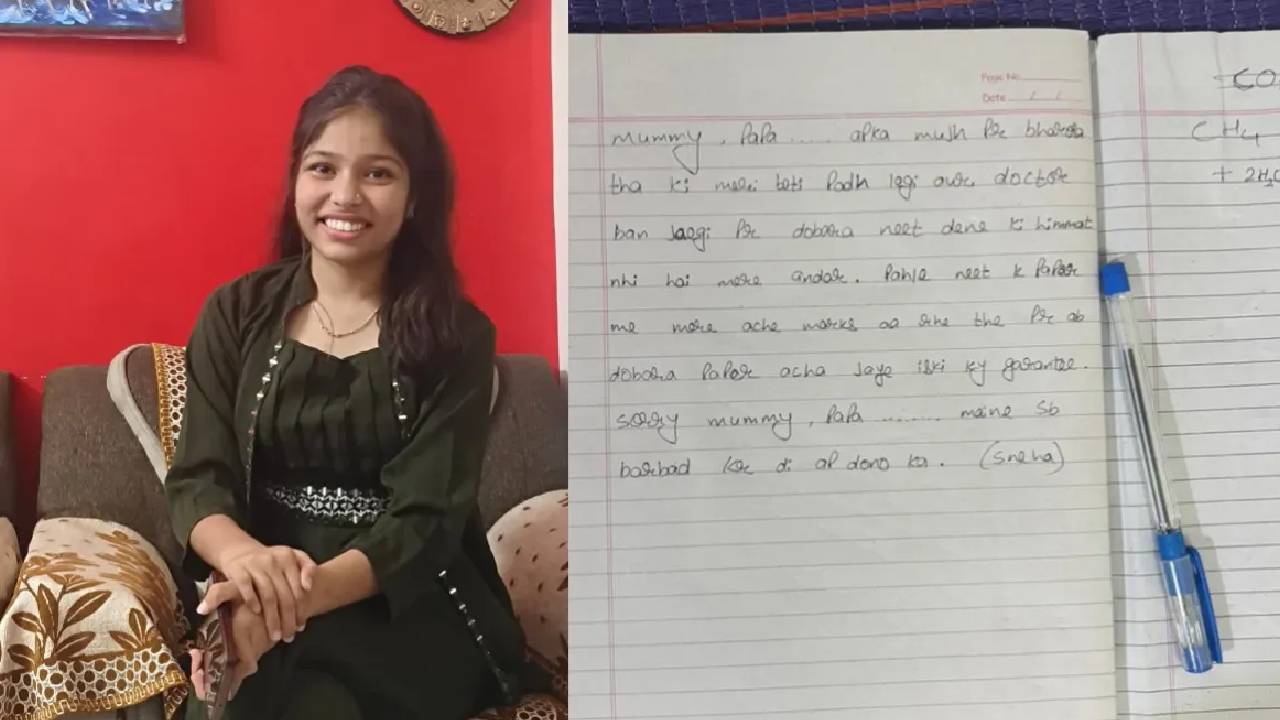 Page No.
Date / /
Mummy, Papa ..... apka mujh Pr bharosa
tha ki meri beti Padh legi aur doctor
ban jaegi Pr dobara neet dene ki himmat
nhi hai mere andar. Pahle neet k Paper
me mere ache marks aa rhe the Pr ab
dobara Paper acha jaye iski ky garantee.
sorry mummy, Papa ........ maine sb
barbad kr di ap dono ka. (Sneha)
CH4
+ 2H2O